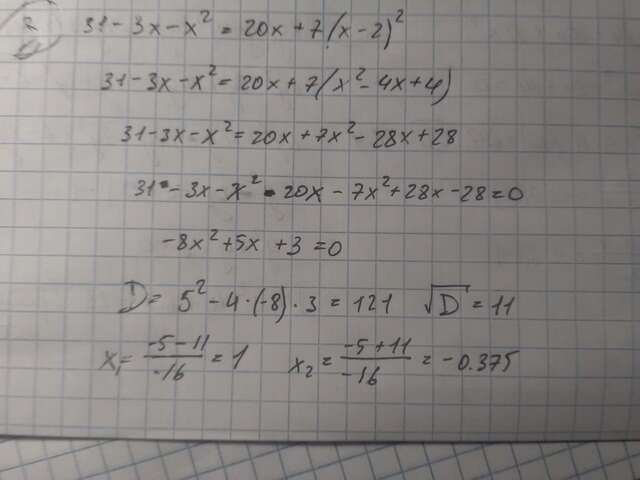 31 - 3x - x² = 20x + 7(x - 2)²
31 - 3x - x² = 20x + 7(x² - 4x + 4)
31 - 3x - x² = 20x + 7x² - 28x + 28
31 - 3x - x² - 20x - 7x² + 28x - 28 = 0
-8x² + 5x + 3 = 0
D = 5² - 4·(-8)·3 = 121 √D = 11
x₁ = (-5 - 11)/(-16) = 1 x₂ = (-5 + 11)/(-16) = -0.375